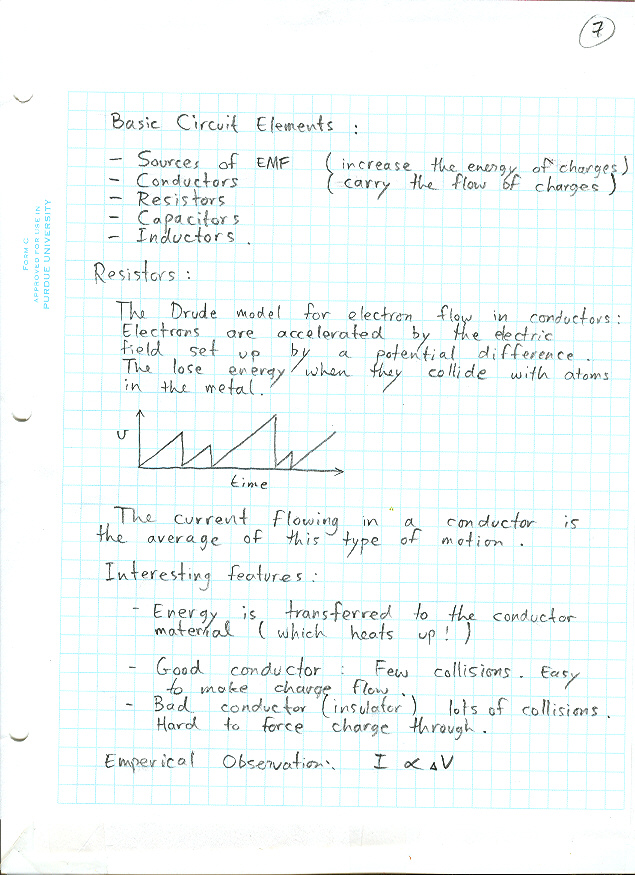 7
Basic Circuit Elements :
- Sources of EMF (increase the energy of charges)
- Conductors (carry the flow of charges)
- Resistors
- Capacitors
- Inductors.
FORM C
APPROVED FOR USE IN
PURDUE UNIVERSITY
Resistors :
The Drude model for electron flow in conductors :
Electrons are accelerated by the electric
field set up by a potential difference.
The lose energy when they collide with atoms
in the metal.
v
time
The current flowing in a conductor is
the average of this type of motion.
Interesting features :
- Energy is transferred to the conductor
material (which heats up!)
- Good conductor : Few collisions. Easy
to make charge flow.
- Bad conductor (insulator) lots of collisions.
Hard to force charge through.
Emperical Observation:. I ∝ ΔV